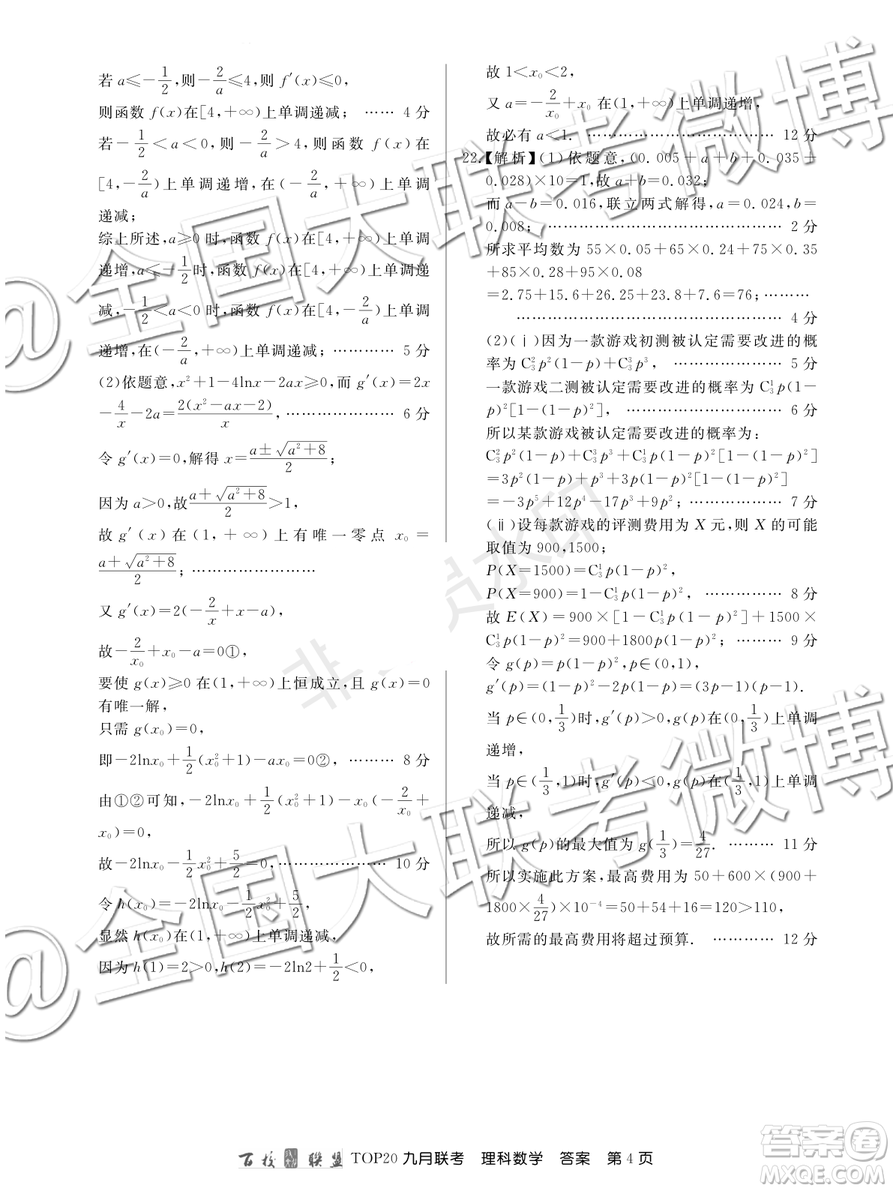 若 a≤-1/2,则-2/a≤4,则 f′(x)≤0,
则函数 f(x)在[4,+∞)上单调递减; …… 4 分
若-1/2<a<0,则-2/a>4,则函数 f(x)在
[4,-2/a)上单调递增,在(-2/a,+∞)上单调
递减;
综上所述,a≥0 时,函数 f(x)在[4,+∞)上单调
递增,a≤-1/2时,函数 f(x)在[4,+∞)上单调递
减,-1/2<a<0 时,函数 f(x)在[4,-2/a)上单调
递增,在(-2/a,+∞)上单调递减; ………… 5 分
(2)依题意,x²+1-4lnx-2ax≥0,而 g′(x)=2x
-4/x-2a=2(x²-ax-2)/x, ……………… 6 分
令 g′(x)=0,解得 x=(a±√(a²+8))/2;
因为 a>0,故(a+√(a²+8))/2>1,
故 g′(x)在(1,+∞)上有唯一零点 x₀=
(a+√(a²+8))/2; …………………
又 g′(x)=2(-2/x+x-a),
故-2/x₀+x₀-a=0①,
要使 g(x)≥0 在(1,+∞)上恒成立,且 g(x)=0
有唯一解,
只需 g(x₀)=0,
即-2lnx₀+1/2(x₀²+1)-ax₀=0②, ……… 8 分
由①②可知,-2lnx₀+1/2(x₀²+1)-x₀(-2/x₀+
x₀)=0,
故-2lnx₀-1/2x₀²+5/2=0, ……………… 10 分
令 h(x₀)=-2lnx₀-1/2x₀²+5/2,
显然 h(x₀)在(1,+∞)上单调递减,
因为 h(1)=2>0,h(2)=-2ln2+1/2<0,
故 1<x₀<2,
又 a=-2/x₀+x₀ 在(1,+∞)上单调递增,
故必有 a<1. …………………………… 12 分
22.【解析】(1)依题意,(0.005+a+b+0.035+
0.028)×10=1,故 a+b=0.032;
而 a-b=0.016,联立两式解得,a=0.024,b=
0.008; ……………………………… 2 分
所求平均数为 55×0.05+65×0.24+75×0.35
+85×0.28+95×0.08
=2.75+15.6+26.25+23.8+7.6=76; ………
……………………………………… 4 分
(2)(ⅰ)因为一款游戏初测被认定需要改进的概
率为 C₃²p²(1-p)+C₃³p³, ………………… 5 分
一款游戏二测被认定需要改进的概率为 C₃¹p(1-
p)²[1-(1-p)²], ……………………… 6 分
所以某款游戏被认定需要改进的概率为:
C₃²p²(1-p)+C₃³p³+C₃¹p(1-p)²[1-(1-p)²]
=3p²(1-p)+p³+3p(1-p)²[1-(1-p)²]
=-3p⁵+12p⁴-17p³+9p²; …………… 7 分
(ⅱ)设每款游戏的评测费用为 X 元,则 X 的可能
取值为 900,1500;
P(X=1500)=C₃¹p(1-p)²,
P(X=900)=1-C₃¹p(1-p)², ………… 8 分
故 E(X)=900×[1-C₃¹p(1-p)²]+1500×
C₃¹p(1-p)²=900+1800p(1-p)²; ……… 9 分
令 g(p)=p(1-p)²,p∈(0,1),
g′(p)=(1-p)²-2p(1-p)=(3p-1)(p-1).
当 p∈(0,1/3)时,g′(p)>0,g(p)在(0,1/3)上单调
递增,
当 p∈(1/3,1)时,g′(p)<0,g(p)在(1/3,1)上单调
递减,
所以 g(p)的最大值为 g(1/3)=4/27. ……… 11 分
所以实施此方案,最高费用为 50+600×(900+
1800×4/27)×10⁻⁴=50+54+16=120>110,
故所需的最高费用将超过预算. ………… 12 分
百校联盟 TOP20 九月联考 理科数学 答案 第 4 页
@全国大联考微博
@全国大联考微博
非会员水印
答案圈
MXQE.COM